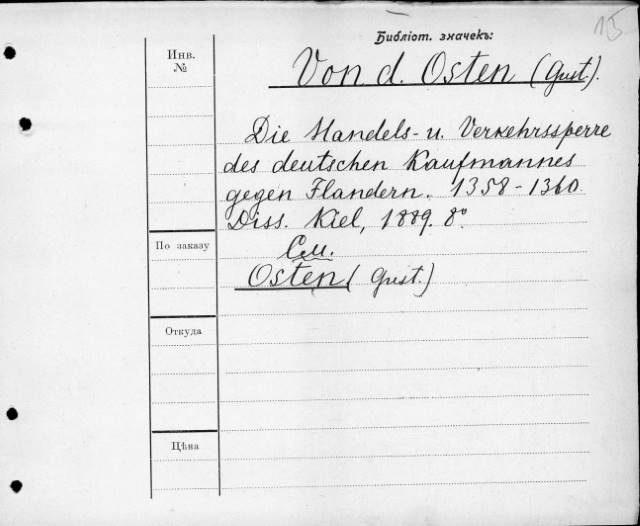 15
Библіот. значекъ:
Инв.
№
Von d. Osten (Gust.).
Die Handels- u. Verkehrssperre
des deutschen Kaufmannes
gegen Flandern. 1358-1360.
Diss. Kiel, 1889. 8º
По заказу
См.
Osten (Gust.)
Откуда
Цѣна